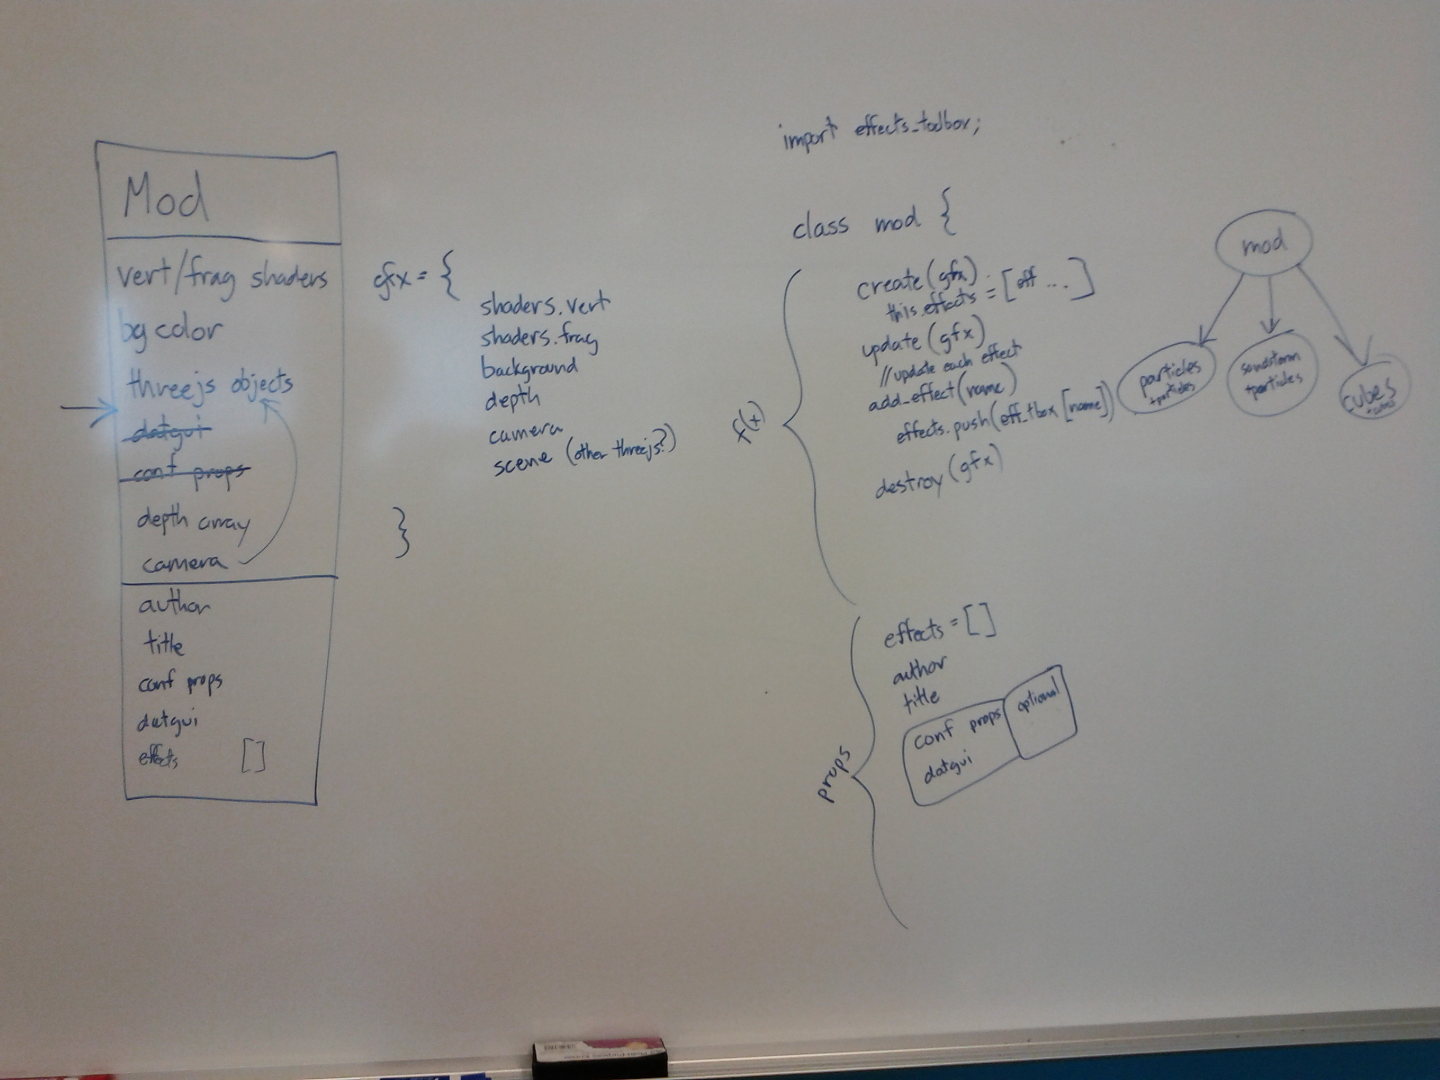 Mod
vert/frag shaders
bg color
threejs objects
datgui
conf props
depth array
camera
author
title
conf props
datgui
effects []
gfx = {
shaders.vert
shaders.frag
background
depth
camera
scene (other threejs?)
}
import effects_toolbox;
class mod {
f(x)
create(gfx)
this.effects = [eff ...]
update(gfx)
//update each effect
add_effect(name)
effects.push(eff_tbox[name])
destroy(gfx)
props
effects = []
author
title
conf props optional
datgui
mod
particles
+particles
sandstorm
+particles
cubes